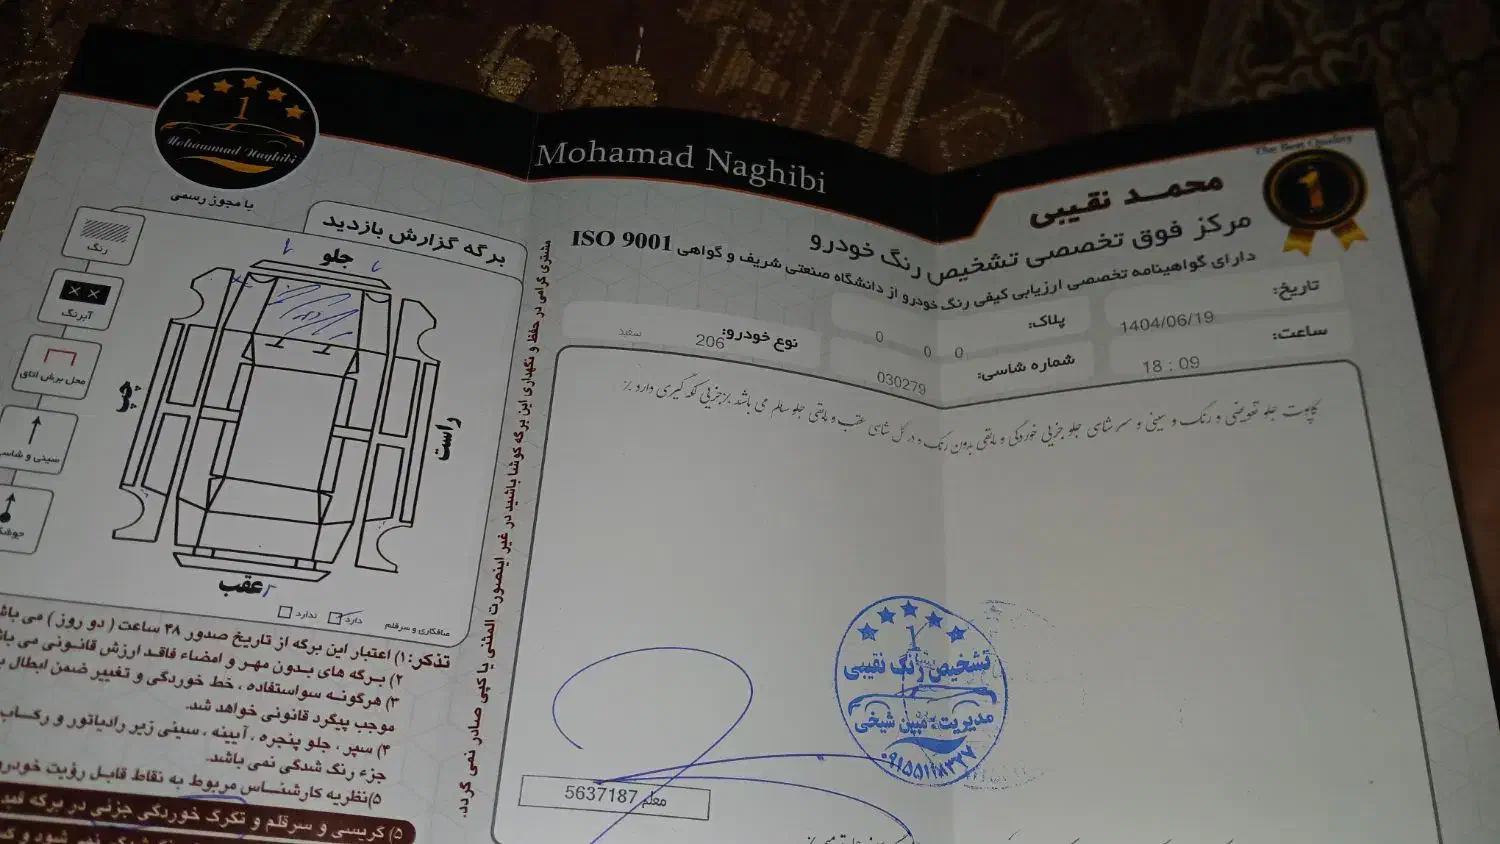 Mohamad Naghibi
The Best Quality
1
محمد نقیبی
مرکز فوق تخصصی تشخیص رنگ خودرو
دارای گواهینامه تخصصی ارزیابی کیفی رنگ خودرو از دانشگاه صنعتی شریف و گواهی ISO 9001
تاریخ: 1404/06/19
پلاک: 0 0 0
نوع خودرو: 206 سفید
ساعت: 18 : 09
شماره شاسی: 030279
کاپوت جلو تعویض و رنگ و سینی و سر شاسی جلو جزیی خوردگی و مابقی بدون رنگ و در کل شاسی عقب و مابقی جلو سالم می باشد ./جزیی لکه گیری دارد ./
1
تشخیص رنگ نقیبی
مدیریت: مبین شیخی
معلم 5637187
مشتری گرامی در حفظ و نگهداری این برگه کوشا باشید در غیر اینصورت المثنی یا کپی صادر نمی گردد.
1
Mohammad Naghibi
با مجوز رسمی
برگه گزارش بازدید
جلو
راست
چپ
عقب
رنگ
آبرنگ
محل برش اتاق
سینی و شاسی
صافکاری و سرقلم دارد ندارد
تذکر: ۱) اعتبار این برگه از تاریخ صدور ۴۸ ساعت ( دو روز ) می باشد
۲) برگه های بدون مهر و امضاء فاقد ارزش قانونی می باشد
۳) هرگونه سواستفاده ، خط خوردگی و تغییر ضمن ابطال
موجب پیگرد قانونی خواهد شد.
۴) سپر ، جلو پنجره ، آیینه ، سینی زیر رادیاتور و رکساب
جزء رنگ شدگی نمی باشد.
۵)نظریه کارشناس مربوط به نقاط قابل رؤیت خودرو
۵) گریسی و سرقلم و تگرگ خوردگی جزئی در برگه قید